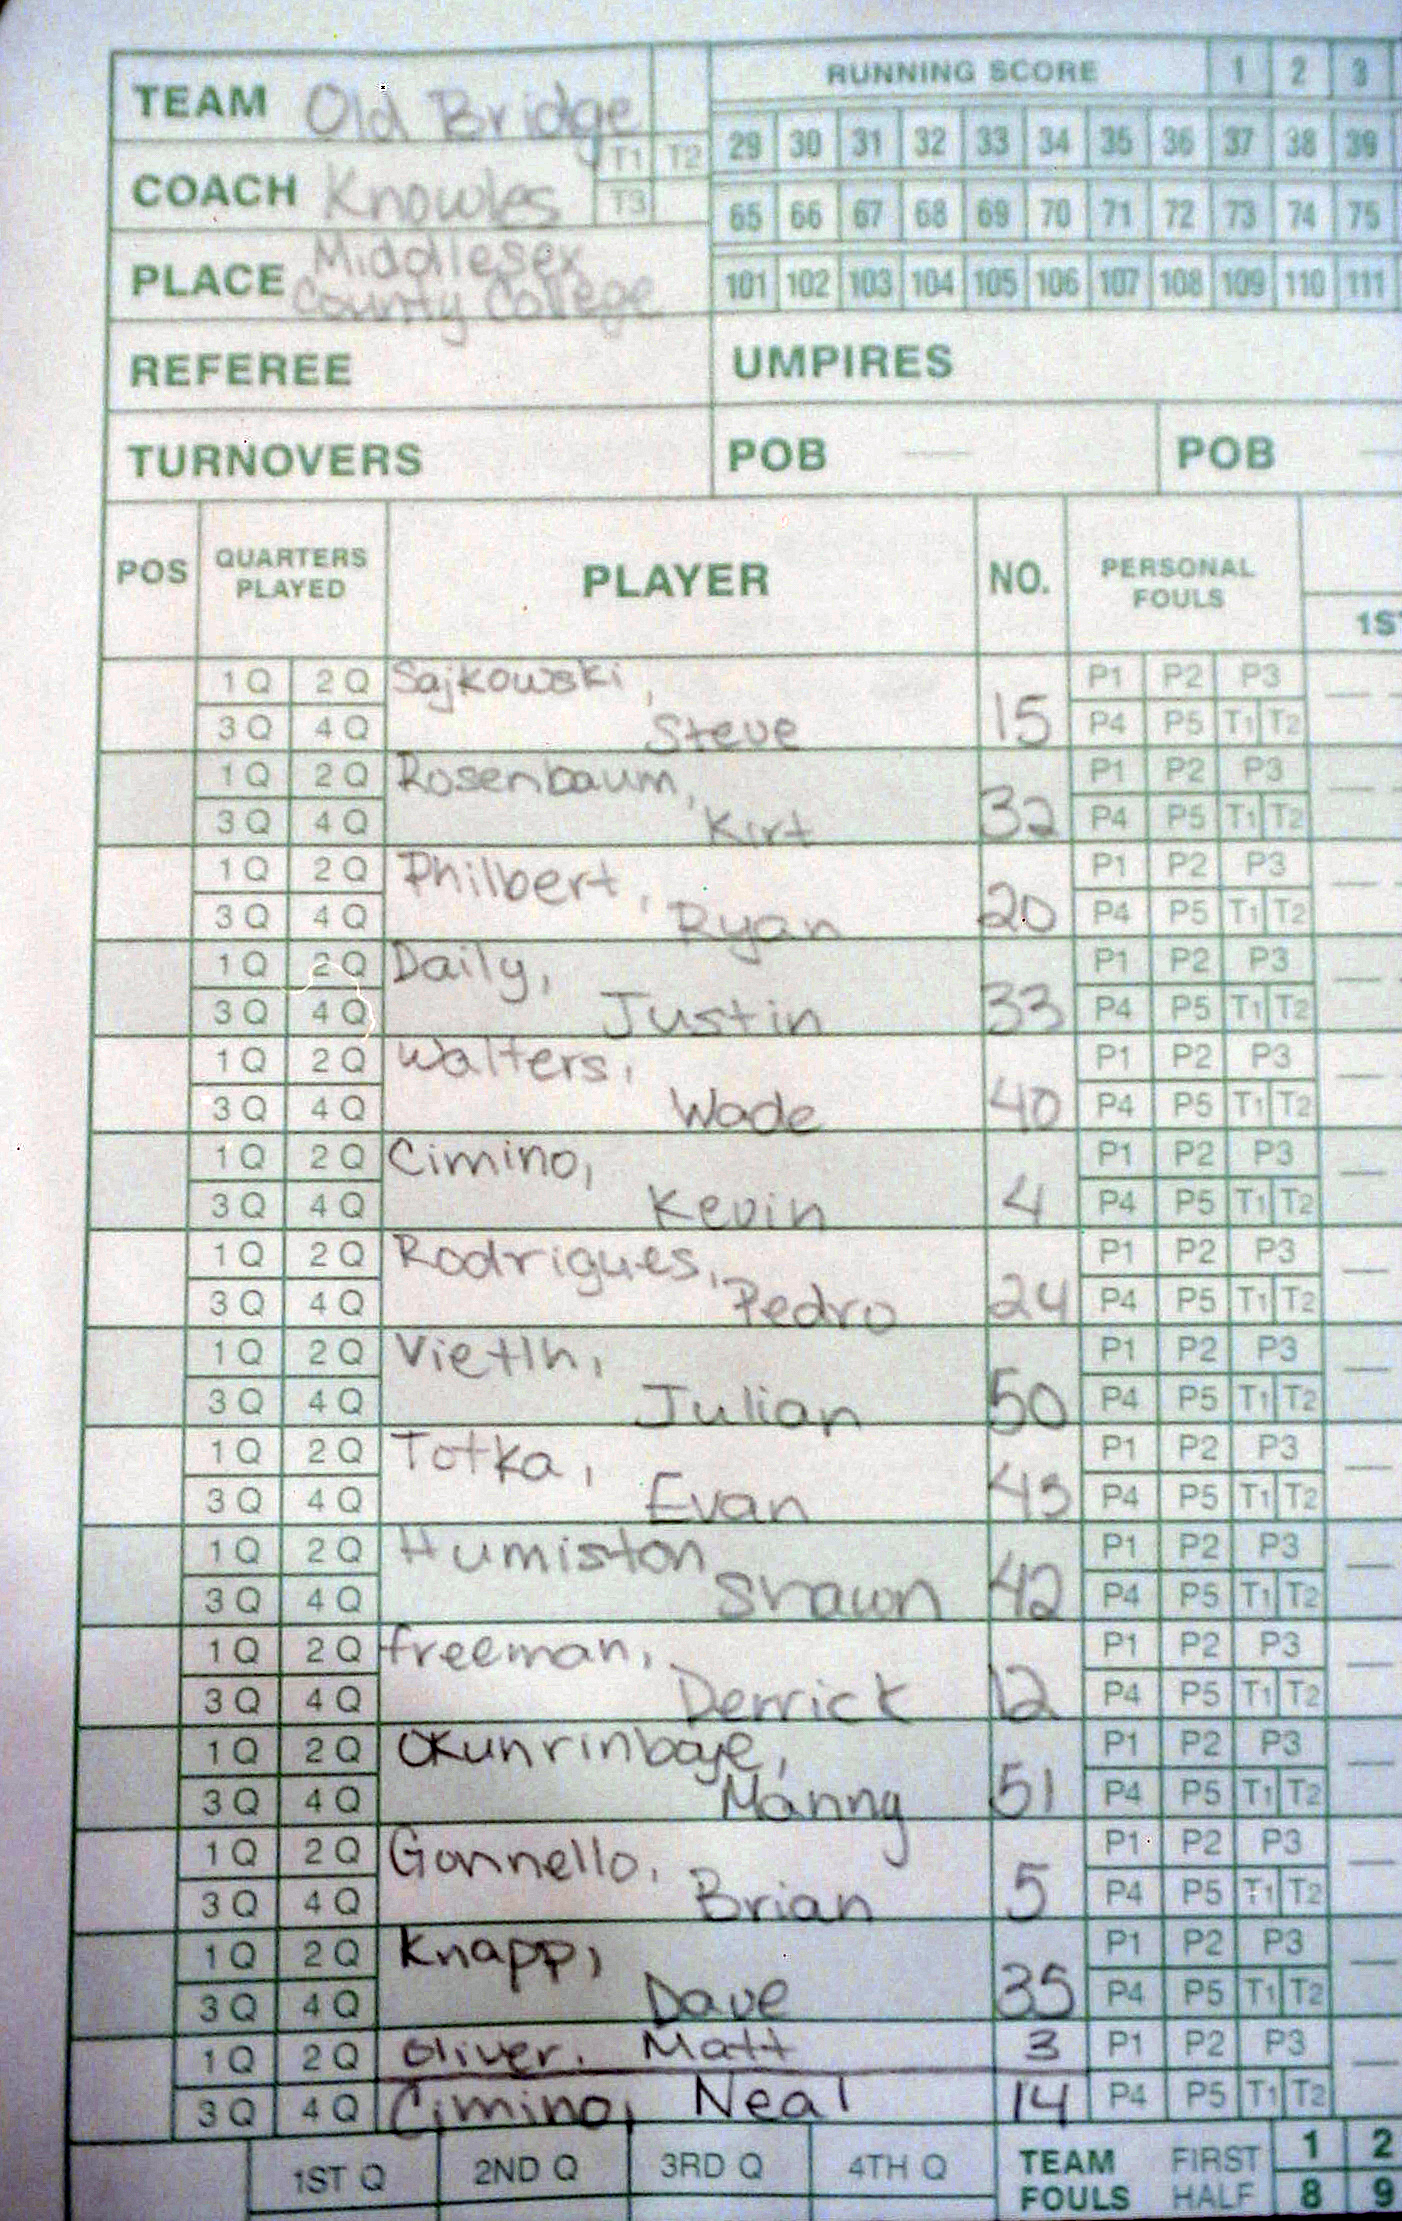 TEAM Old Bridge
RUNNING SCORE 1 2 3
T1 T2
29 30 31 32 33 34 35 36 37 38 39
COACH Knowles T3
65 66 67 68 69 70 71 72 73 74 75
PLACE Middlesex
County College
101 102 103 104 105 106 107 108 109 110 111
REFEREE UMPIRES
TURNOVERS POB POB
POS QUARTERS PLAYED PLAYER NO. PERSONAL FOULS
1ST
1Q 2Q Sajkowski, P1 P2 P3
3Q 4Q Steve 15 P4 P5 T1 T2
1Q 2Q Rosenbaum, P1 P2 P3
3Q 4Q Kirt 32 P4 P5 T1 T2
1Q 2Q Philbert, P1 P2 P3
3Q 4Q Ryan 20 P4 P5 T1 T2
1Q 2Q Daily, P1 P2 P3
3Q 4Q Justin 33 P4 P5 T1 T2
1Q 2Q Walters, P1 P2 P3
3Q 4Q Wade 40 P4 P5 T1 T2
1Q 2Q Cimino, P1 P2 P3
3Q 4Q Kevin 4 P4 P5 T1 T2
1Q 2Q Rodrigues, P1 P2 P3
3Q 4Q Pedro 24 P4 P5 T1 T2
1Q 2Q P1 P2 P3
3Q 4Q Julian 50 P4 P5 T1 T2
1Q 2Q Totka, P1 P2 P3
3Q 4Q Evan P4 P5 T1 T2
1Q 2Q Humiston P1 P2 P3
3Q 4Q Shawn 42 P4 P5 T1 T2
1Q 2Q freeman, P1 P2 P3
3Q 4Q Derrick 12 P4 P5 T1 T2
1Q 2Q Okunrinboye, P1 P2 P3
3Q 4Q Manny 51 P4 P5 T1 T2
1Q 2Q Gonnello, P1 P2 P3
3Q 4Q Brian 5 P4 P5 T1 T2
1Q 2Q Knapp, P1 P2 P3
3Q 4Q Dave 35 P4 P5 T1 T2
1Q 2Q Oliver, Matt 3 P1 P2 P3
3Q 4Q Cimino, Neal 14 P4 P5 T1 T2
1ST Q 2ND Q 3RD Q 4TH Q TEAM FOULS FIRST HALF 1 2
8 9